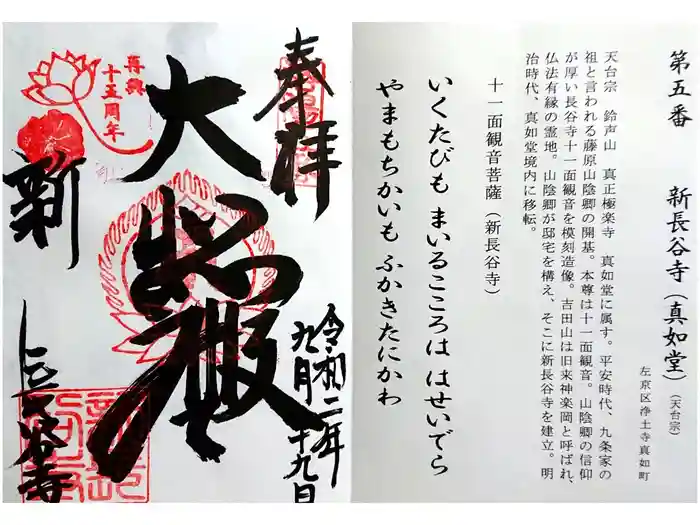 第五番　新長谷寺（真如堂）（天台宗）
左京区浄土寺真如町
天台宗　鈴声山　真正極楽寺　真如堂に属す。平安時代、九条家の
祖と言われる藤原山陰卿の開基。本尊は十一面観音。山陰卿の信仰
が厚い長谷寺十一面観音を模刻造像。吉田山は旧来神楽岡と呼ばれ、
仏法有縁の霊地。山陰卿が邸宅を構え、そこに新長谷寺を建立。明
治時代、真如堂境内に移転。
十一面観音菩薩（新長谷寺）
いくたびも　まいるこころは　はせいでら
やまもちかいも　ふかきたにかわ
奉拝
令和二年
九月十九日
大悲殿
再興
十五周年
新
長谷寺